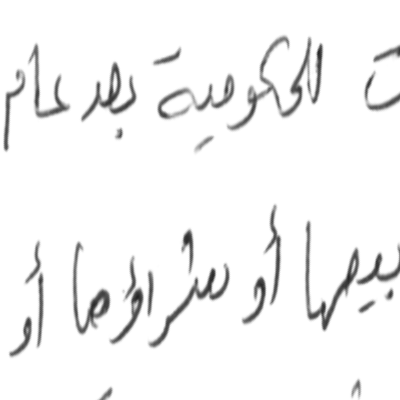 ت الحكومية بعد عام
بيعها أو شراؤها أو